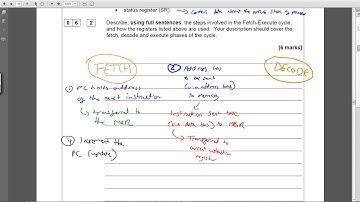 status register (SR).
→ Contains data about the
0 6 . 2
Describe, using full sentences, the steps involved in the Fetch-Execute cycle,
and how the registers listed above are used. Your description should cover the
fetch, decode and execute phases of the cycle.
[6 marks]
FETCH
DECODE
① PC holds address
of the next instruction
↳ transferred to
the MAR
② Address
to be sent
(via address bus)
to memory
Instruction sent back
(via data bus) to MBR
↳ Transferred to
current instruction
register
④ Increment the
PC (update)